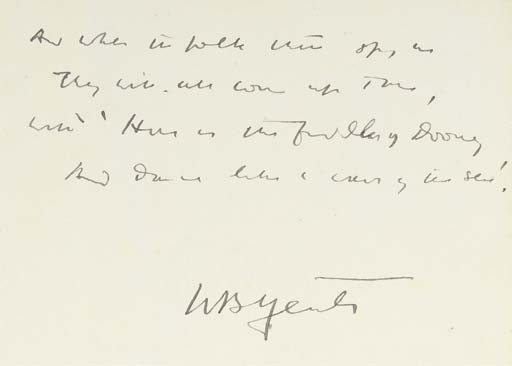 And when the folk there spy me
They will all come up to me,
with 'Here is the fiddler of Dooney
And dance like a wave of the sea'.
WB Yeats